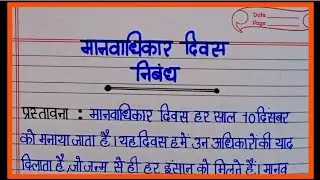 Date
Page
मानवाधिकार दिवस
निबंध
प्रस्तावना : मानवाधिकार दिवस हर साल 10 दिसंबर
को मनाया जाता है। यह दिवस हमें उन अधिकारों की याद
दिलाता है, जो जन्म से ही हर इंसान को मिलते हैं। मानव